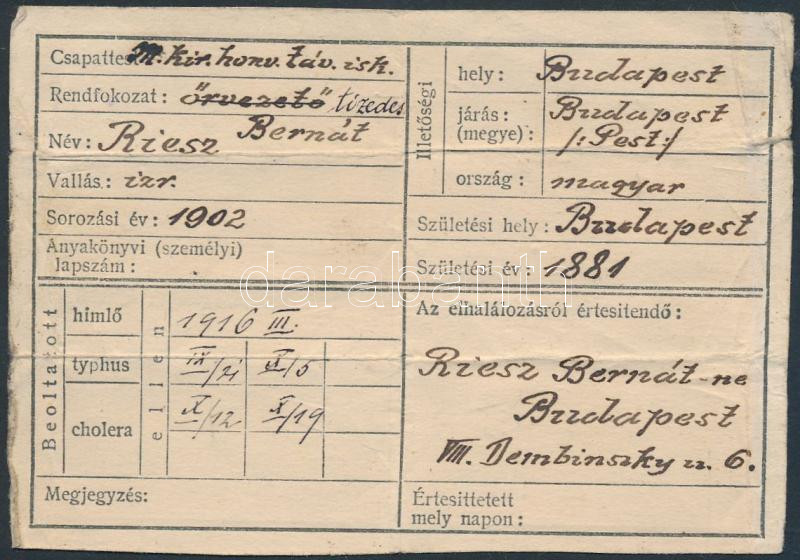 Csapattes M. kir. honv. táv. isk.
Rendfokozat: őrvezető tizedes
Név: Riesz Bernát
Vallás: izr.
Sorozási év: 1902
Anyakönyvi (személyi)
lapszám:
Illetőségi
hely: Budapest
járás: Budapest
(megye): /:Pest:/
ország: magyar
Születési hely: Budapest
Születési év: 1881
darabanth
Beoltatott
ellen
himlő 1916 III.
typhus IX/21 X/5
cholera X/12 X/19
Megjegyzés:
Az elhalálozásról értesitendő:
Riesz Bernát-ne
Budapest
VIII. Dembinszky u. 6.
Értesittetett
mely napon: